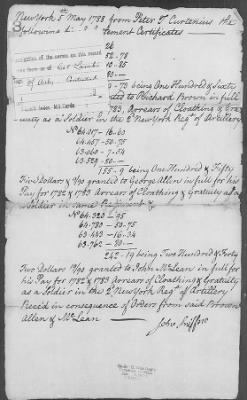 New York 5th May 1788 from Peter T Curtenius the
following tlement Certificates
26
52-78
10-25
80-
9-73 being One Hundred & Sixty
ted to Richard Brown in full
783, Arrears of Cloathing & Grat
uity as a Soldier in the 2d New York Regt of Artillery
No 64.417-16-60
64.457-50-75
63.460-7-54
63.529-80-
155-9 being One Hundred & Fifty
Five Dollars & 9/90 granted to George Allen in full for his
Pay for 1782 & 1783 Arrears of Cloathing & Gratuity as a
Soldier in same Regiment &
No 64.323-95
64.730-50-75
63.443-16-34
63.762-80-
242-19 being Two Hundred & Forty
Two Dollars 19/90 granted to John McLean in full for
his Pay for 1782 & 1783 Arrears of Cloathing & Gratuity
as a Soldier in the 2d New York Regt of Artillery
Receid in consequence of Orders from said Brown
Allen & McLean
John